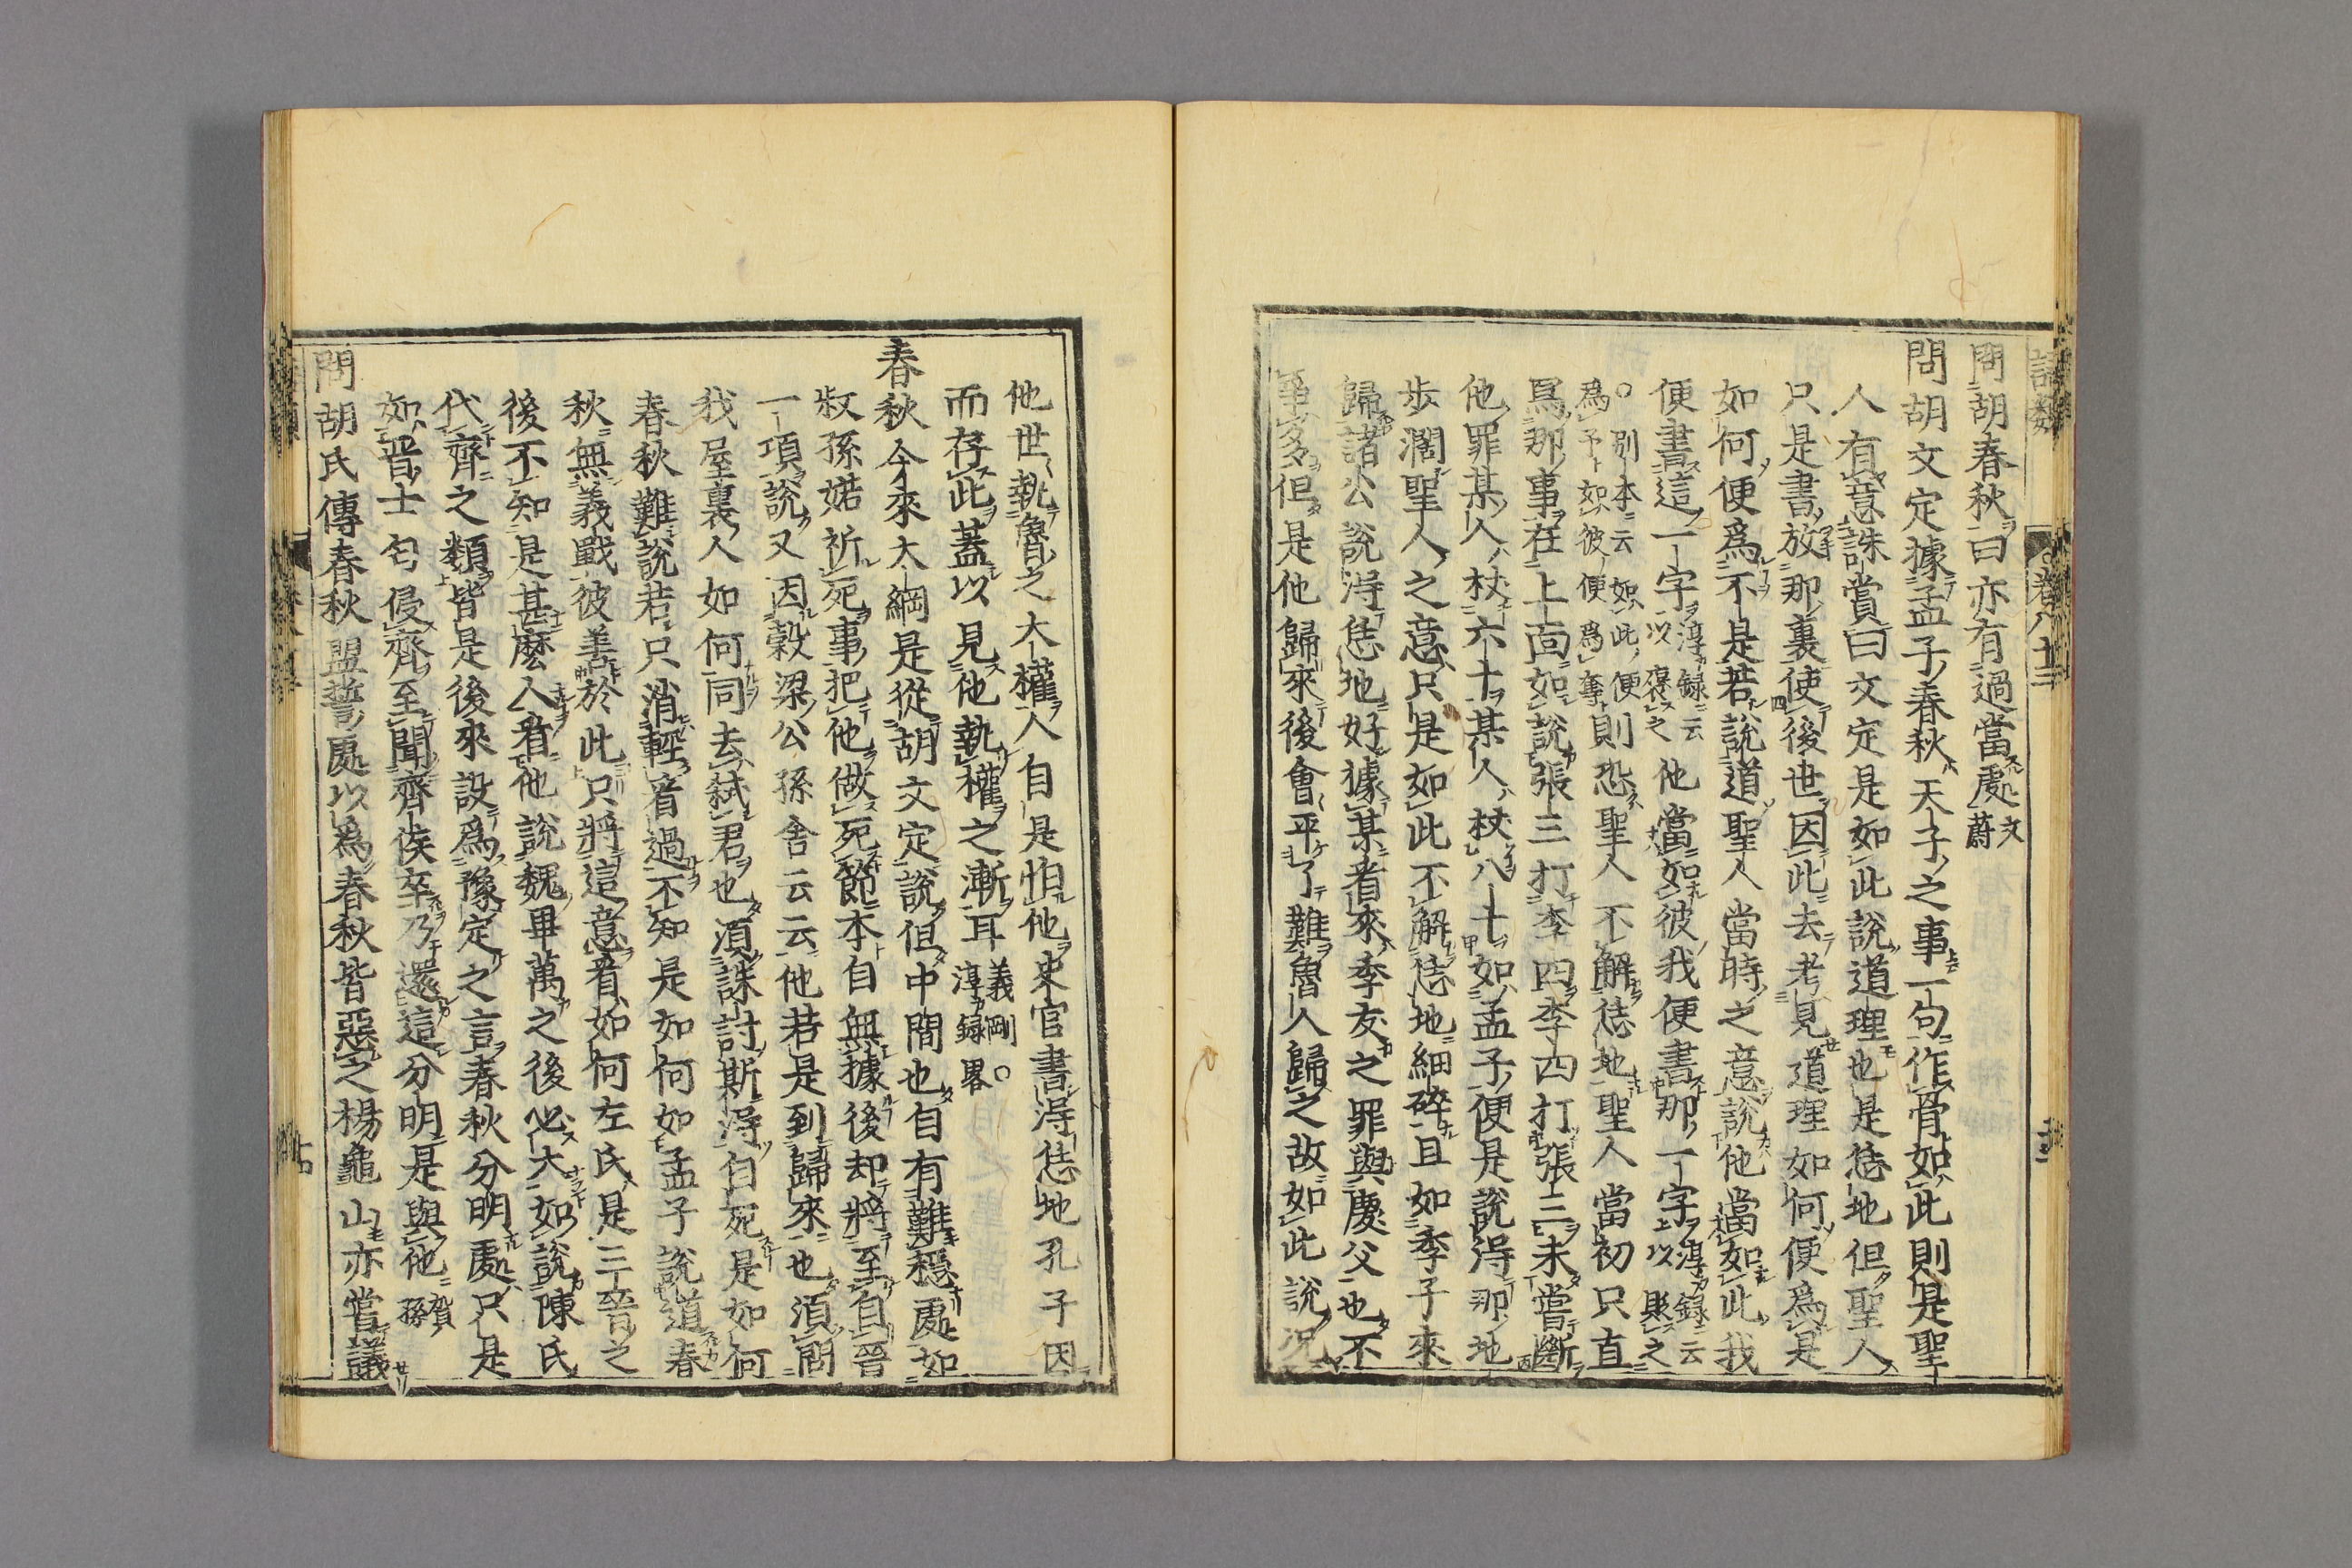 語類
卷八十三
問胡春秋曰亦有過當處文蔚
問胡文定據孟子春秋天子之事一句作骨如此則是聖
人有意誅賞曰文定是如此說道理也是恁地但聖人
只是書放那裏使後世因此去考見道理如何便為是
如何便為不是若說道聖人當時之意說他當如此我
便書這一字淳錄云以褒之他當如彼我便書那一字淳錄云以貶之
○別本云如此便為予如彼便為奪則恐聖人不解恁地聖人當初只直
寫那事在上面如說張三打李四李四打張三未嘗斷
他罪某人杖六十某人杖八十如孟子便是說得那地
步濶聖人之意只是如此不解恁地細碎且如季子來
歸諸公說得恁地好據某看來季友之罪與慶父也不
爭多但是他歸來後會平了難魯人歸之故如此說況
他世執魯之大權人自是怕他史官書得恁地孔子因
而存此蓋以見他執權之漸耳義剛○淳錄畧
春秋今來大綱是從胡文定說但中間也自有難穩處如
叔孫婼祈死事把他做死節本自無據後却將至自晉
一項說又因穀梁公孫舍云云他若是到歸來也須問
我屋裏人如何同去弑君也須誅討斯得自死是如何
春秋難說若只消輕看過不知是如何如孟子說道春
秋無義戰彼善於此只將這意看如何左氏是三晉之
後不知是甚麽人看他說魏畢萬之後必大如說陳氏
代齊之類皆是後來設為豫定之言春秋分明處只是
如晉士匄侵齊至聞齊侯卒乃還這分明是與他賀孫
問胡氏傳春秋盟誓處以為春秋皆惡之楊龜山亦嘗議